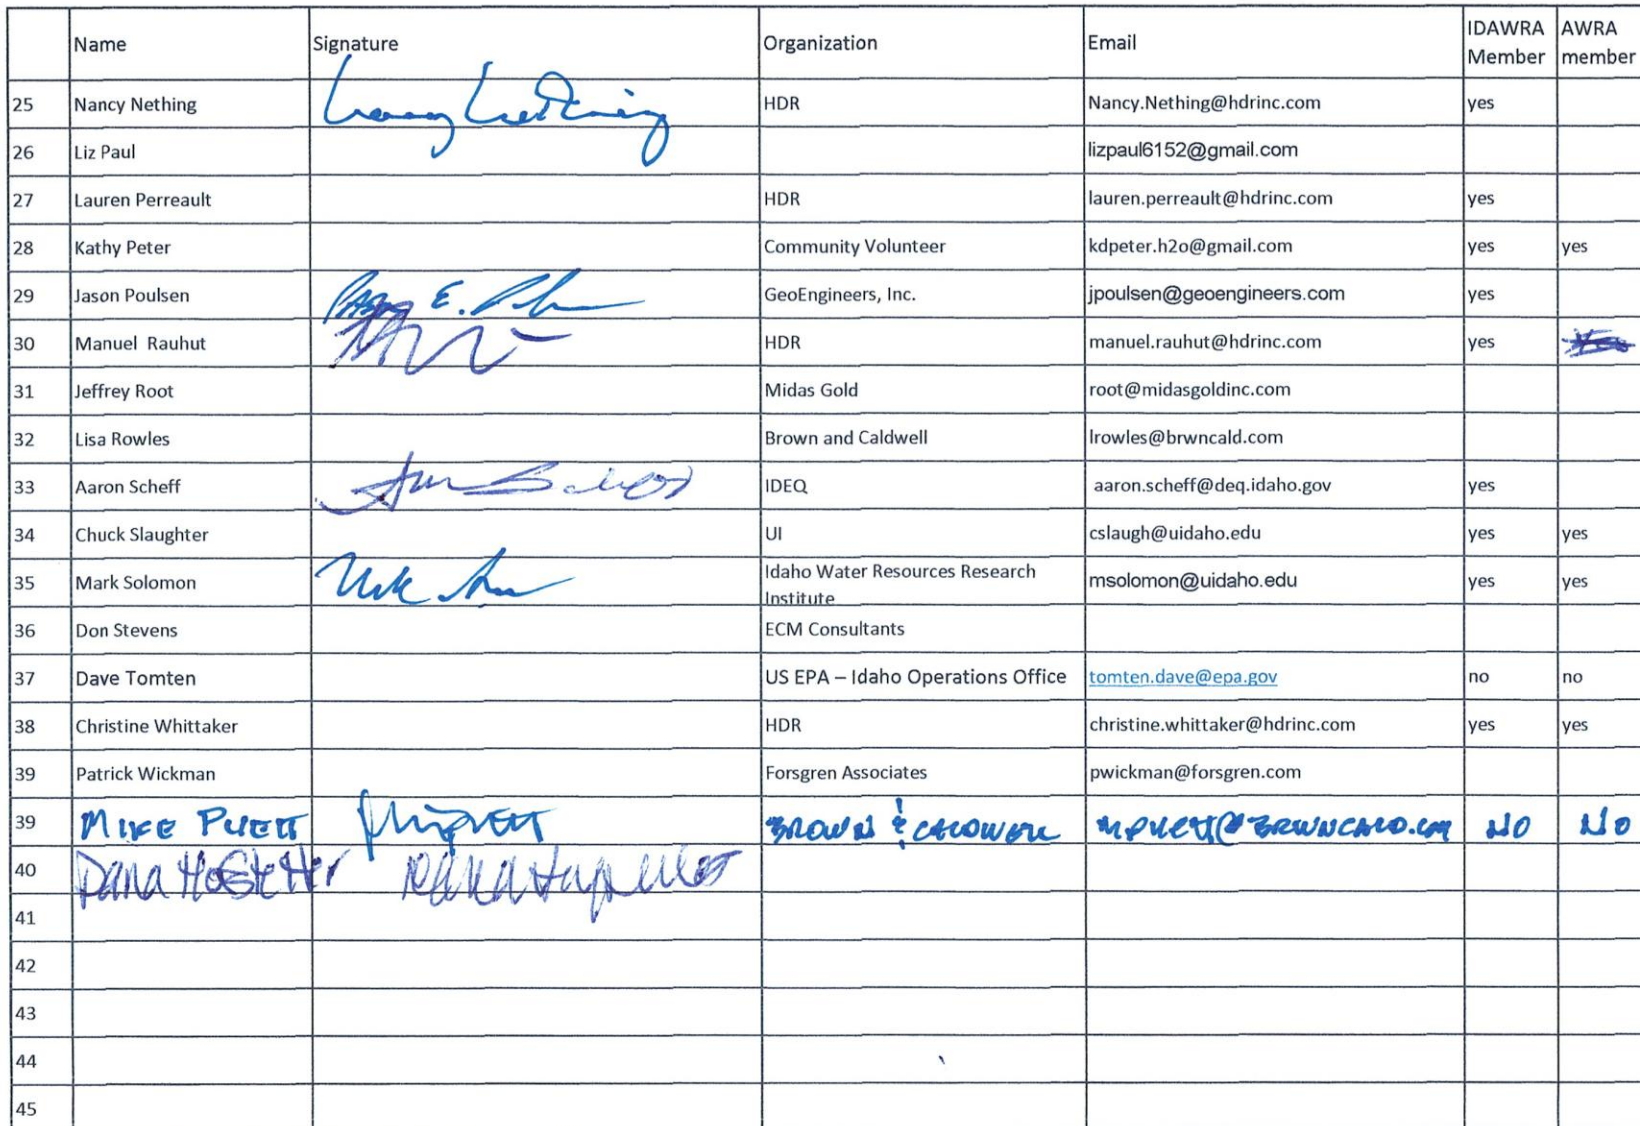 Name Signature Organization Email IDAWRA Member AWRA member
25 Nancy Nething Nancy Nething HDR Nancy.Nething@hdrinc.com yes
26 Liz Paul lizpaul6152@gmail.com
27 Lauren Perreault HDR lauren.perreault@hdrinc.com yes
28 Kathy Peter Community Volunteer kdpeter.h2o@gmail.com yes yes
29 Jason Poulsen GeoEngineers, Inc. jpoulsen@geoengineers.com yes
30 Manuel Rauhut HDR manuel.rauhut@hdrinc.com yes
31 Jeffrey Root Midas Gold root@midasgoldinc.com
32 Lisa Rowles Brown and Caldwell lrowles@brwncald.com
33 Aaron Scheff IDEQ aaron.scheff@deq.idaho.gov yes
34 Chuck Slaughter UI cslaugh@uidaho.edu yes yes
35 Mark Solomon Idaho Water Resources Research Institute msolomon@uidaho.edu yes yes
36 Don Stevens ECM Consultants
37 Dave Tomten US EPA – Idaho Operations Office tomten.dave@epa.gov no no
38 Christine Whittaker HDR christine.whittaker@hdrinc.com yes yes
39 Patrick Wickman Forsgren Associates pwickman@forsgren.com
39 MIKE PUETT BROWN & CALDWELL MPUETT@BRWNCALD.COM NO NO
40 Dana Hofstetter
41
42
43
44
45